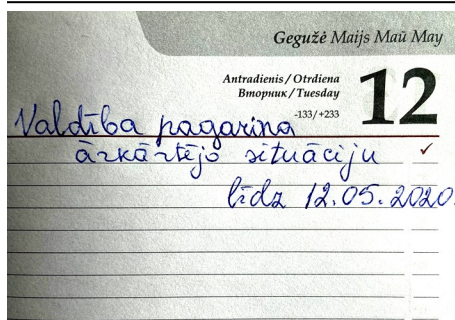 Gegužė Maijs Maŭ May
Antradienis / Otrdiena
Вторник / Tuesday
-133/+233
12
Valdība pagarina
ārkārtējo situāciju
līdz 12.05.2020.